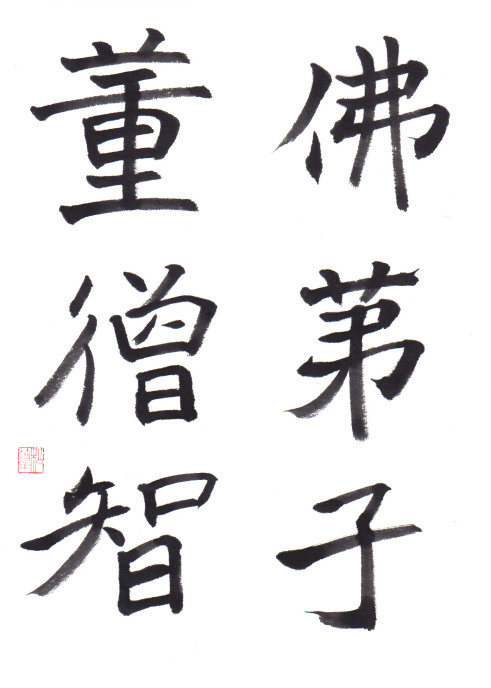 佛苐子
董僧智